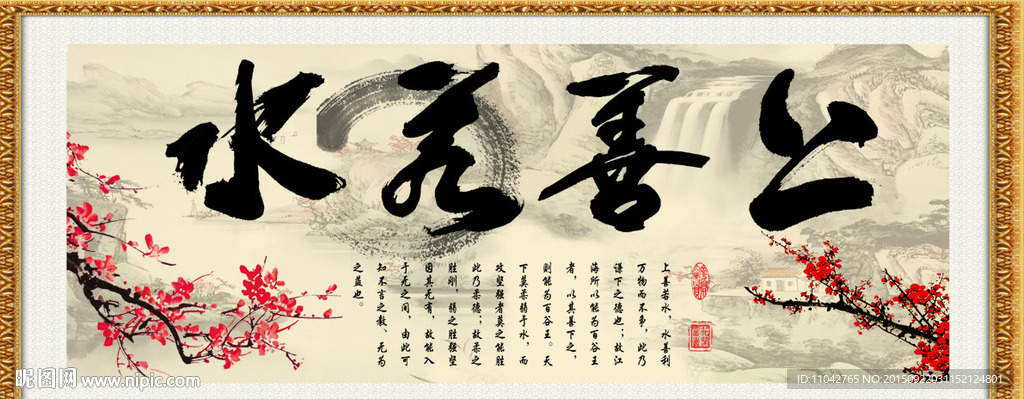 上善若水
上善若水，水善利
万物而不争，此乃
谦下之德也；故江
海所以能为百谷王
者，以其善下之，
则能为百谷王。天
下莫柔弱于水，而
攻坚强者莫之能胜
此乃柔德；故柔之
胜刚，弱之胜强坚
因其无有，故能入
于无之间，由此可
知不言之教、无为
之益也。
昵图网 www.nipic.com
ID:11042765 NO:20150922031152124801